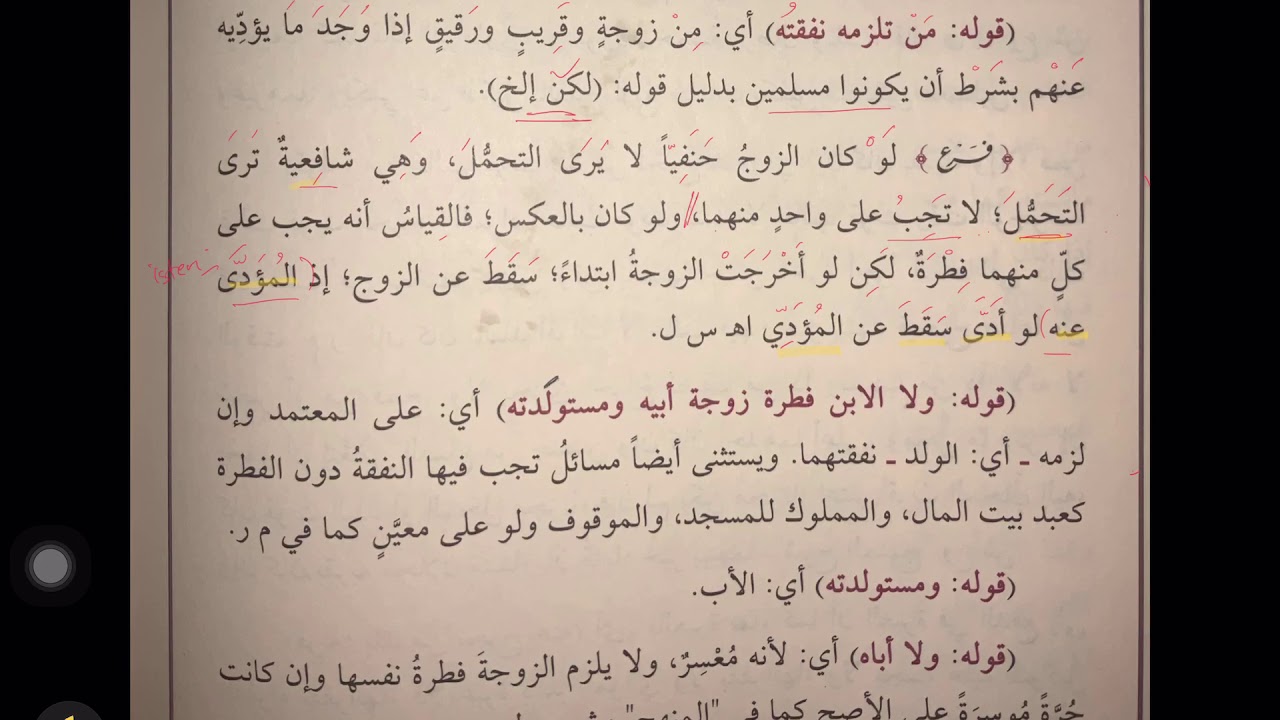 (قوله: مَنْ تلزمه نفقتُه) أي: مِنْ زوجةٍ وقَرِيبٍ ورَقيقٍ إذا وَجَدَ مَا يؤدِّيه
عَنْهْم بشَرْط أن يكونوا مسلمين بدليل قوله: (لكنْ إلخ).
﴿ فَرْع ﴾ لَوْ كان الزوجُ حَنَفِيّاً لا يُرَى التحمُّلَ، وَهِي شافِعيةٌ تَرىَ
التَحَمُّلَ؛ لا تَجَبُ على واحدٍ منهما، ولو كان بالعكس؛ فالقِياسُ أنه يجب على
كلٍّ منهما فِطْرَةٌ، لكَن لو أَخْرَجَتْ الزوجةُ ابتداءً؛ سَقَطَ عن الزوج؛ إذ المُؤَدَّى
isteri
عنه لو أدَّى سَقَطَ عن المُؤَدِّي اهـ س ل.
(قوله: ولا الابن فطرة زوجة أبيه ومستولَدته) أي: على المعتمد وإن
لزمه ـ أي: الولد ـ نفقتهما. ويستثنى أيضاً مسائلُ تجب فيها النفقةُ دون الفطرة
كعبد بيت المال، والمملوك للمسجد، والموقوف ولو على معيَّنٍ كما في م ر.
(قوله: ومستولدته) أي: الأب.
(قوله: ولا أباه) أي: لأنه مُعْسِرٌ، ولا يلزم الزوجةَ فطرةُ نفسها وإن كانت
حُرَّةً مُوسِرَةً على الأصح كما في "المنهج"